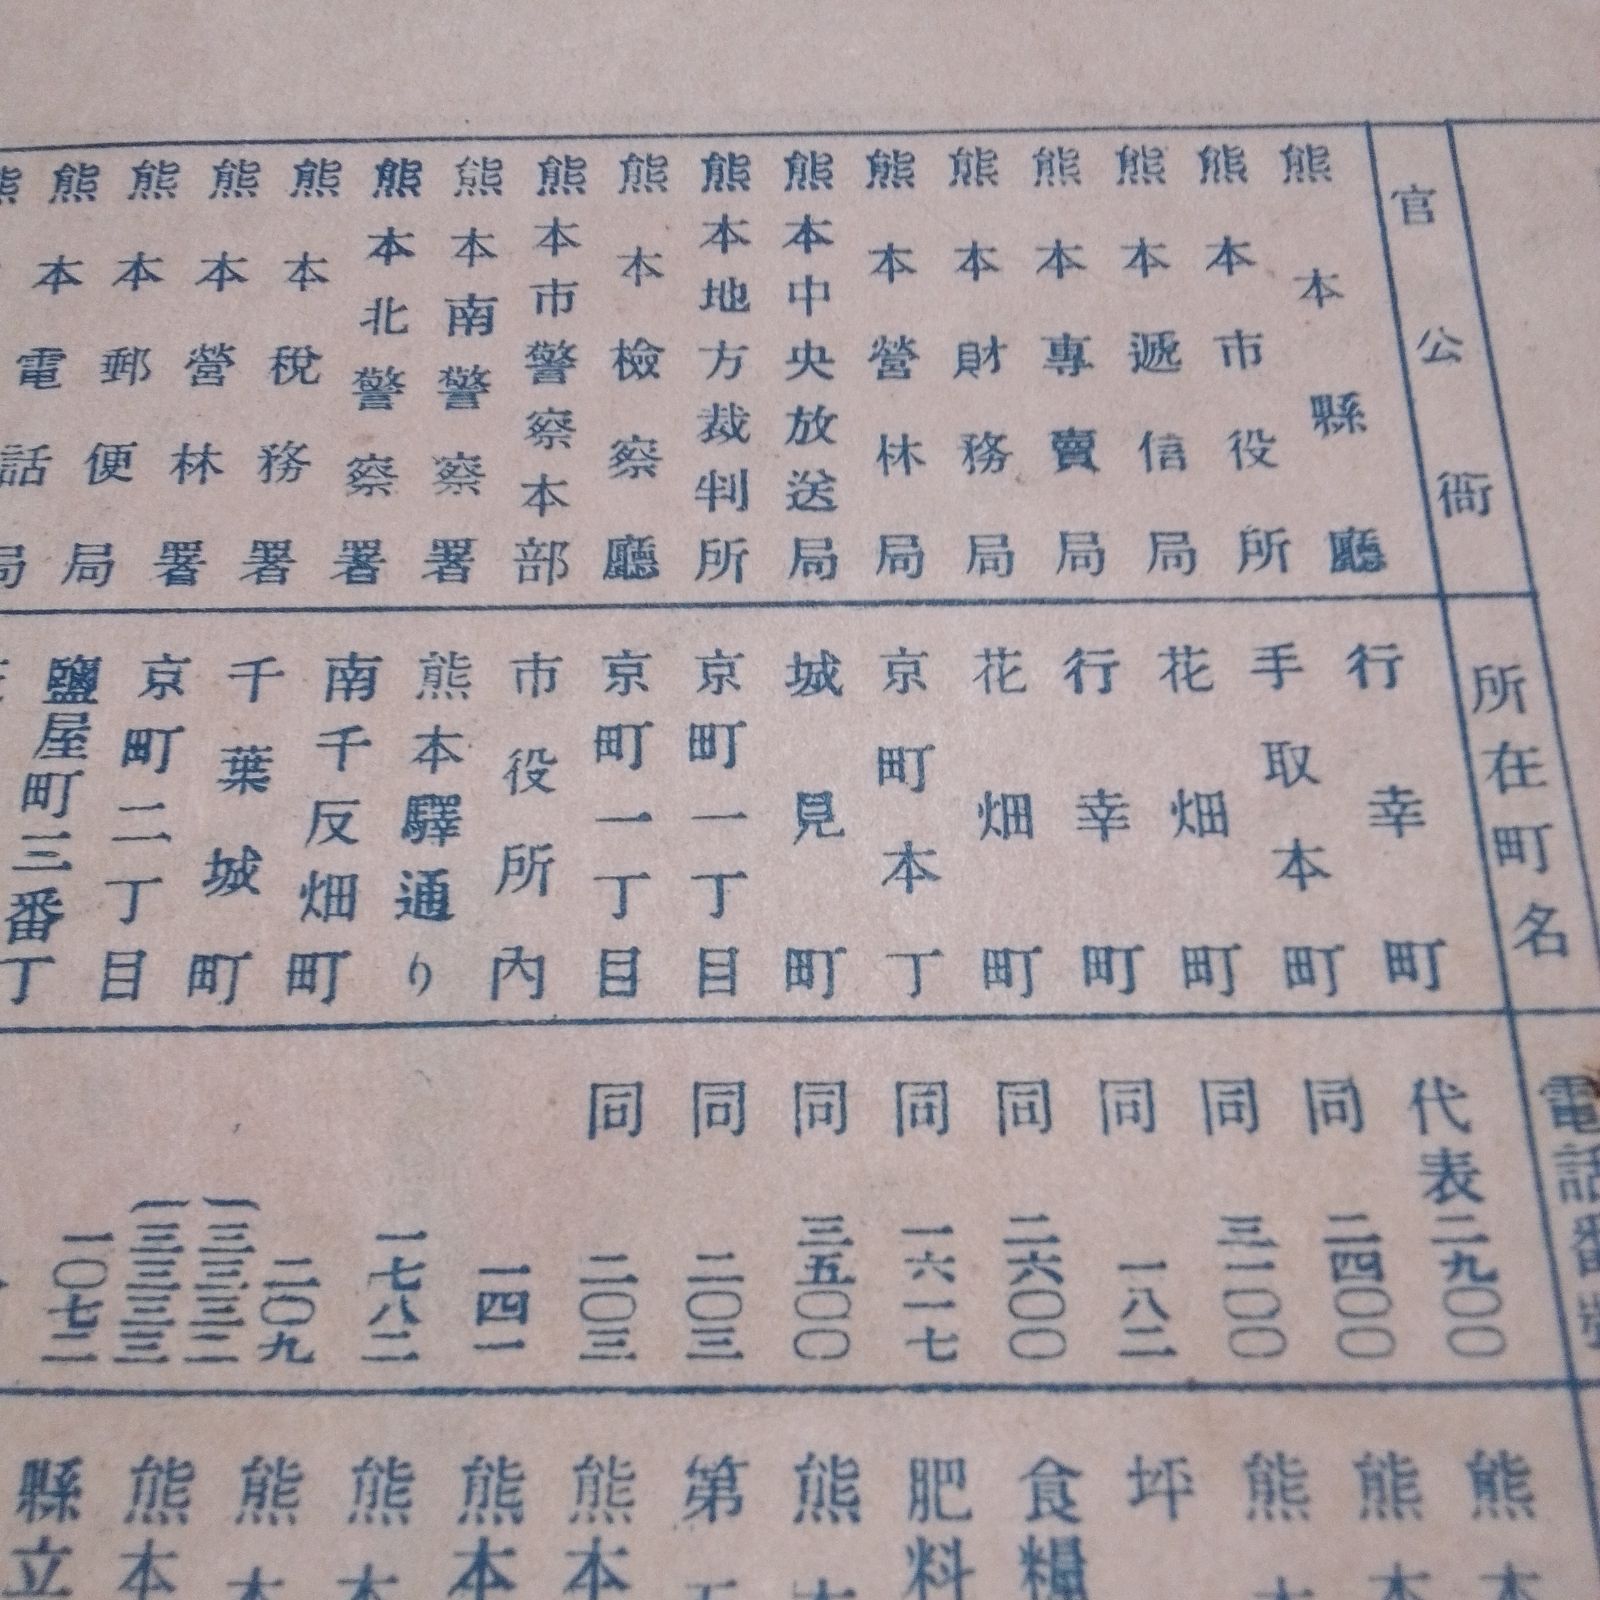 官公衙
所在町名
電話番
熊本縣廳
行幸町
代表二九〇〇
熊本市役所
手取本町
同二四〇〇
熊本遞信局
花畑町
同三一〇〇
熊本專賣局
行幸町
同一八二
熊本財務局
花畑町
同二六〇〇
熊本營林局
京町本丁
同一六一七
熊本中央放送局
城見町
同三五〇〇
熊本地方裁判所
京町一丁目
同二〇三
熊本檢察廳
京町一丁目
同二〇三
熊本市警察本部
市役所內
一四一
熊本南警察署
熊本驛通り
一七八二
熊本北警察署
南千反畑町
二〇九
熊本稅務署
千葉城町
三三三二
三三三三
熊本營林署
京町二丁目
一〇七二
熊本郵便局
鹽屋町三番丁
熊本電話局
熊
熊本
熊本
坪
食糧
肥料
熊
第
熊本
熊本
熊本
熊本
熊本
縣立